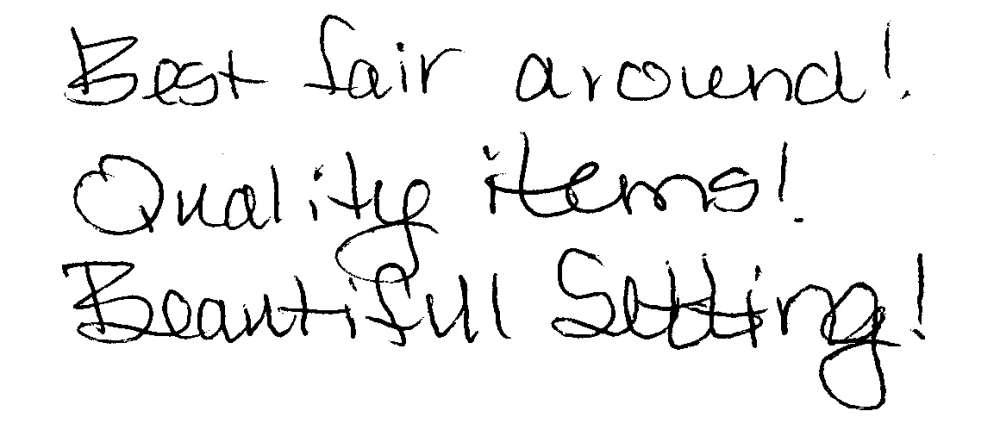 Best fair around!
Quality items!
Beautifull Setting!